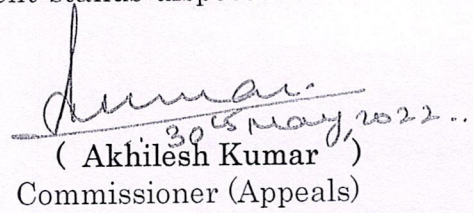 Kumar.
30th May, 2022..
( Akhilesh Kumar )
Commissioner (Appeals)